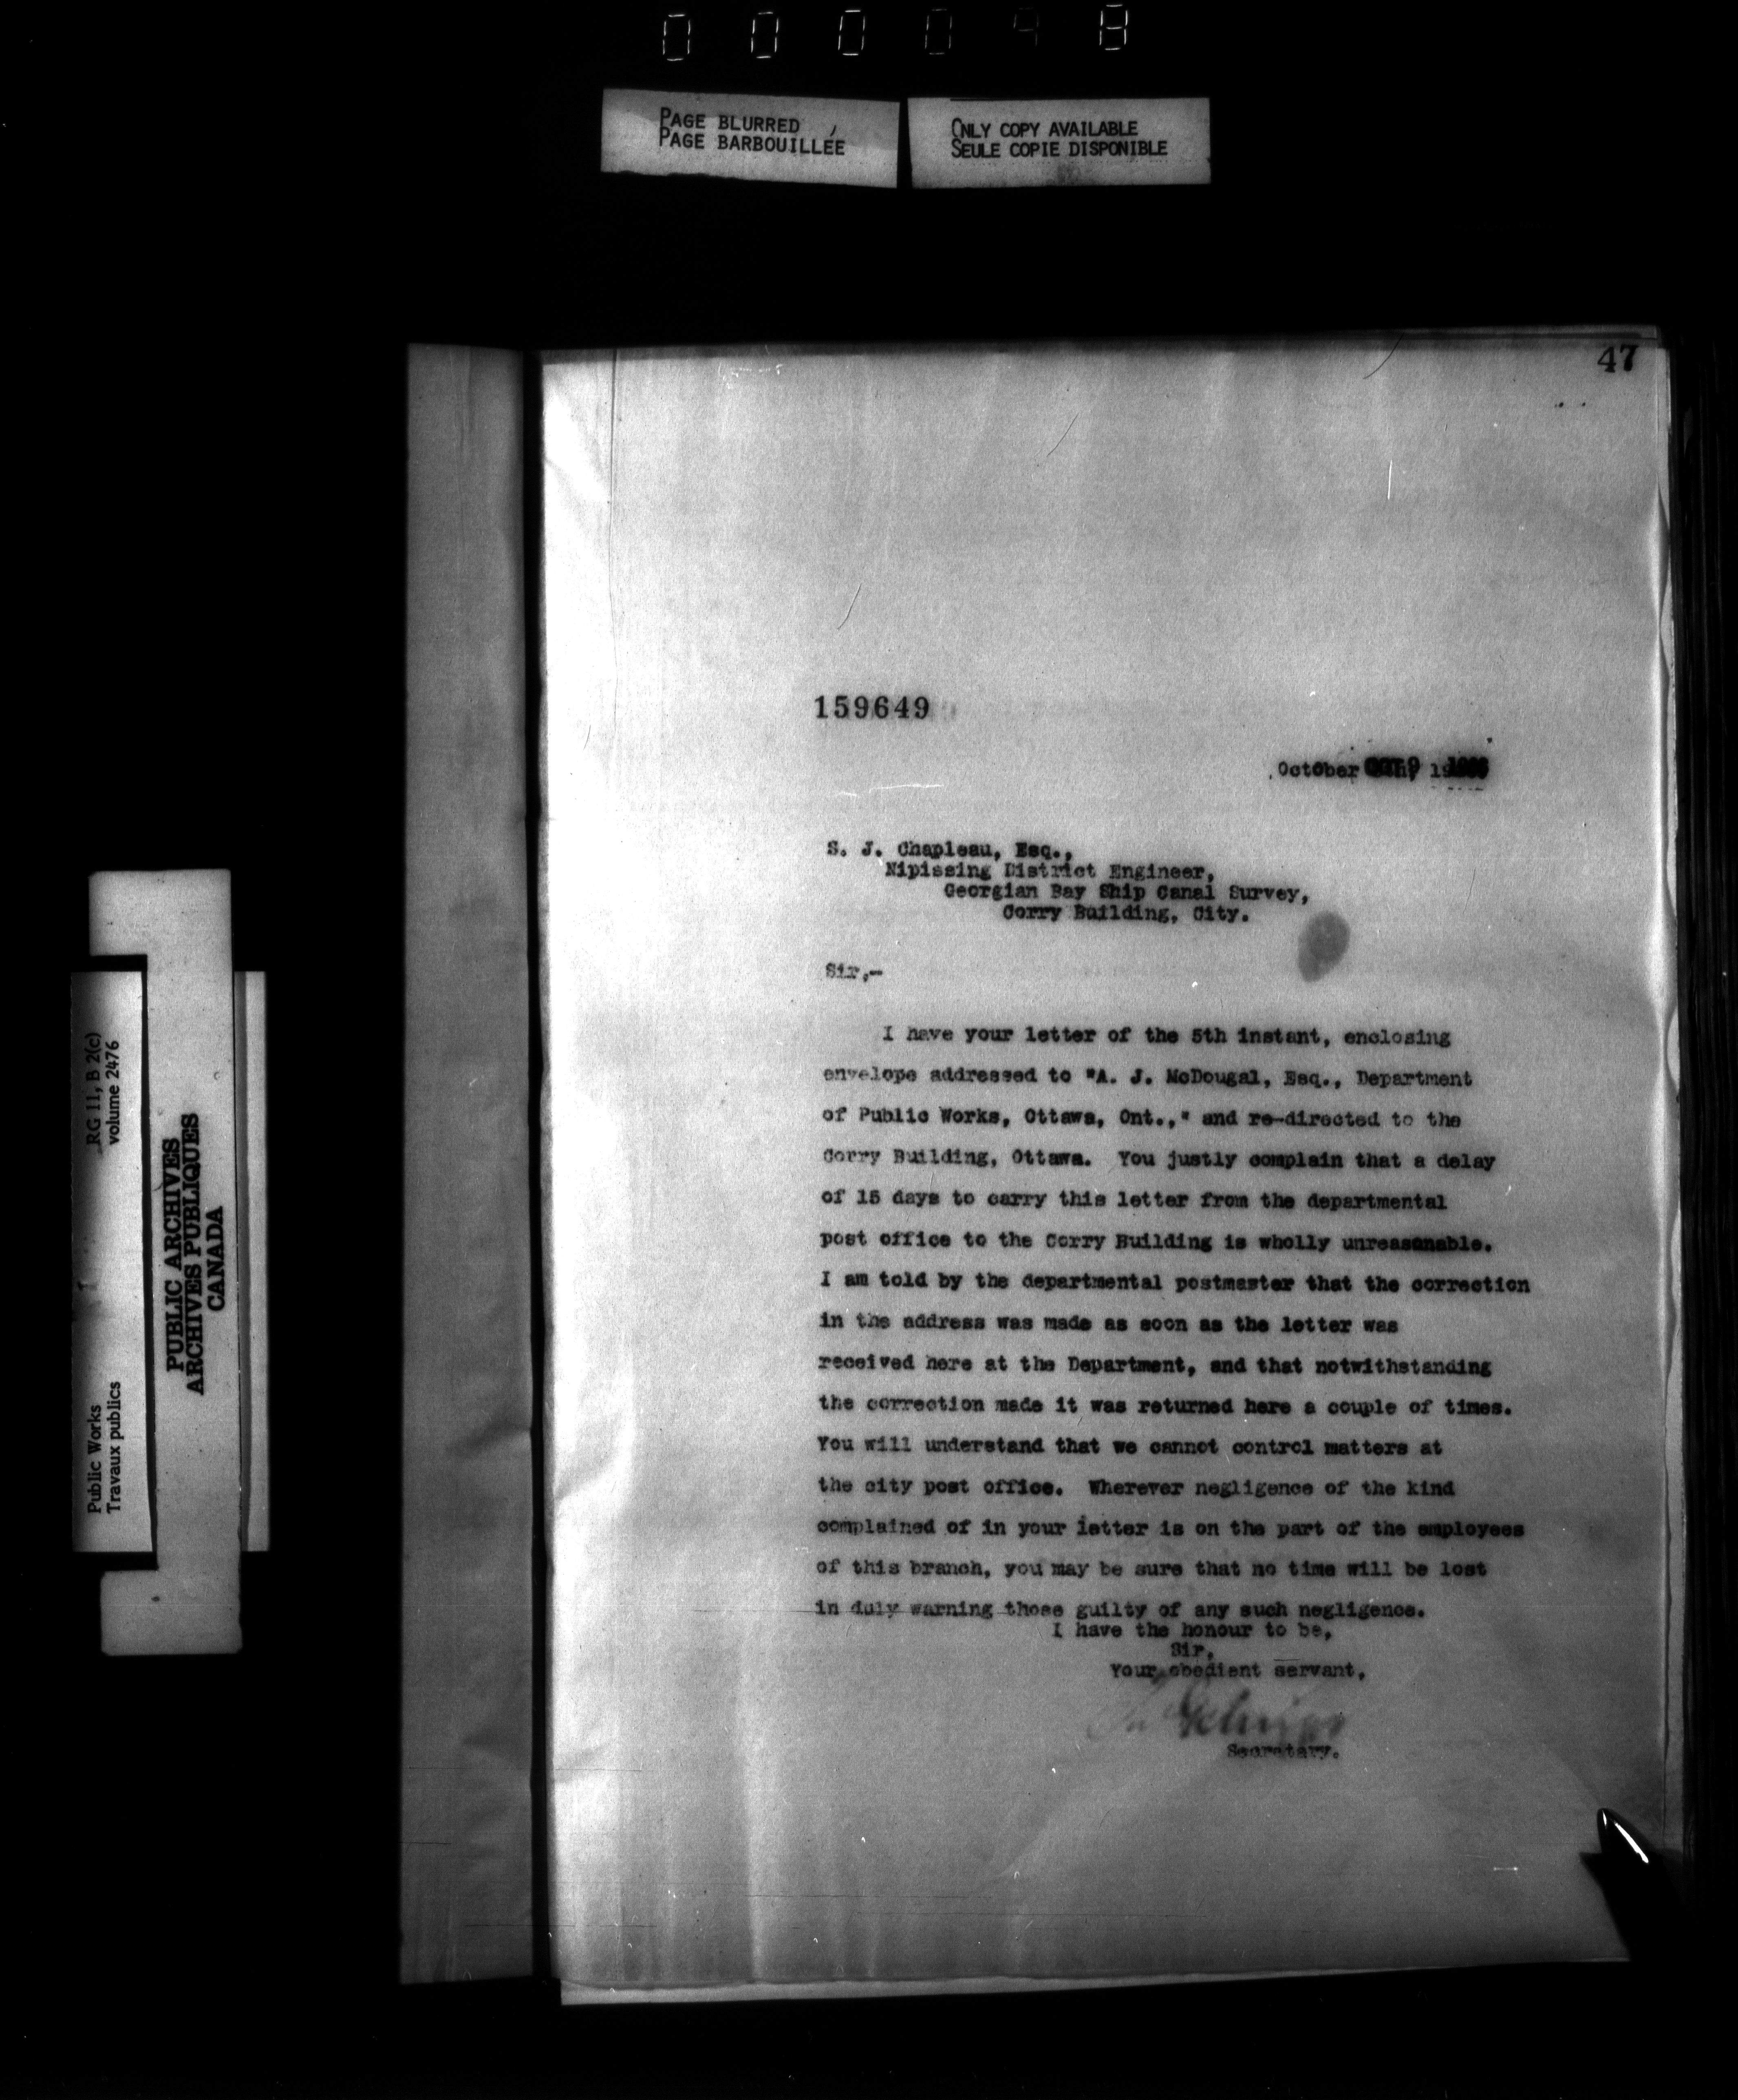 000048
PAGE BLURRED
PAGE BARBOUILLÉE
ONLY COPY AVAILABLE
SEULE COPIE DISPONIBLE
47
159649
October OCT 9 19
S. J. Chapleau, Esq.,
Nipissing District Engineer,
Georgian Bay Ship Canal Survey,
Corry Building, City.
Sir,-
I have your letter of the 5th instant, enclosing
envelope addressed to "A. J. McDougal, Esq., Department
of Public Works, Ottawa, Ont.," and re-directed to the
Corry Building, Ottawa. You justly complain that a delay
of 15 days to carry this letter from the departmental
post office to the Corry Building is wholly unreasonable.
I am told by the departmental postmaster that the correction
in the address was made as soon as the letter was
received here at the Department, and that notwithstanding
the correction made it was returned here a couple of times.
You will understand that we cannot control matters at
the city post office. Wherever negligence of the kind
complained of in your letter is on the part of the employees
of this branch, you may be sure that no time will be lost
in duly warning those guilty of any such negligence.
I have the honour to be,
Sir,
Your obedient servant,
Secretary.
RG 11, B 2(c)
volume 2476
PUBLIC ARCHIVES
ARCHIVES PUBLIQUES
CANADA
Public Works
Travaux publics